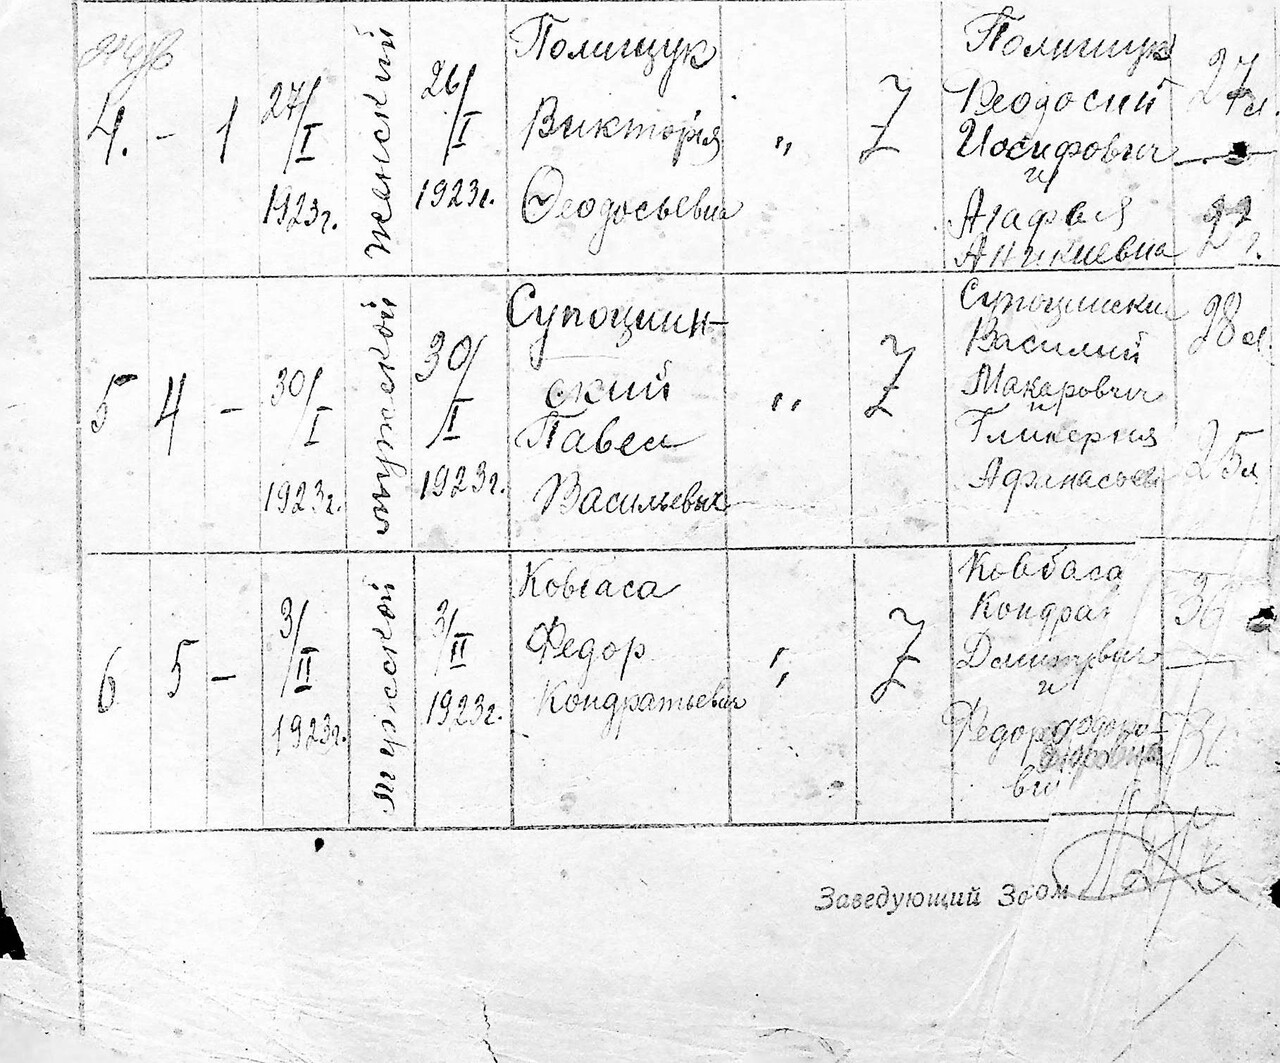 4. - 1
27/I
1923г.
женский
26/I
1923г.
Полищук
Викторія
Феодосьевна
"
7
Полищук
Феодосий
Иосифович
и
Агафья
Аникиевна
27 л.
22 г.
5 4 -
30/I
1923г.
мужской
30/I
1923г.
Супоцин-
ский
Павел
Васильевич
"
7
Супоцински
Василий
Макарович
и
Гликерия
Афанасьев
28 л.
25 л
6 5 -
3/II
1923г.
мужской
3/II
1923г.
Ковбаса
Федор
Кондратьевич
"
7
Ковбаса
Кондрат
Дмитрович
и
36
Заведующий